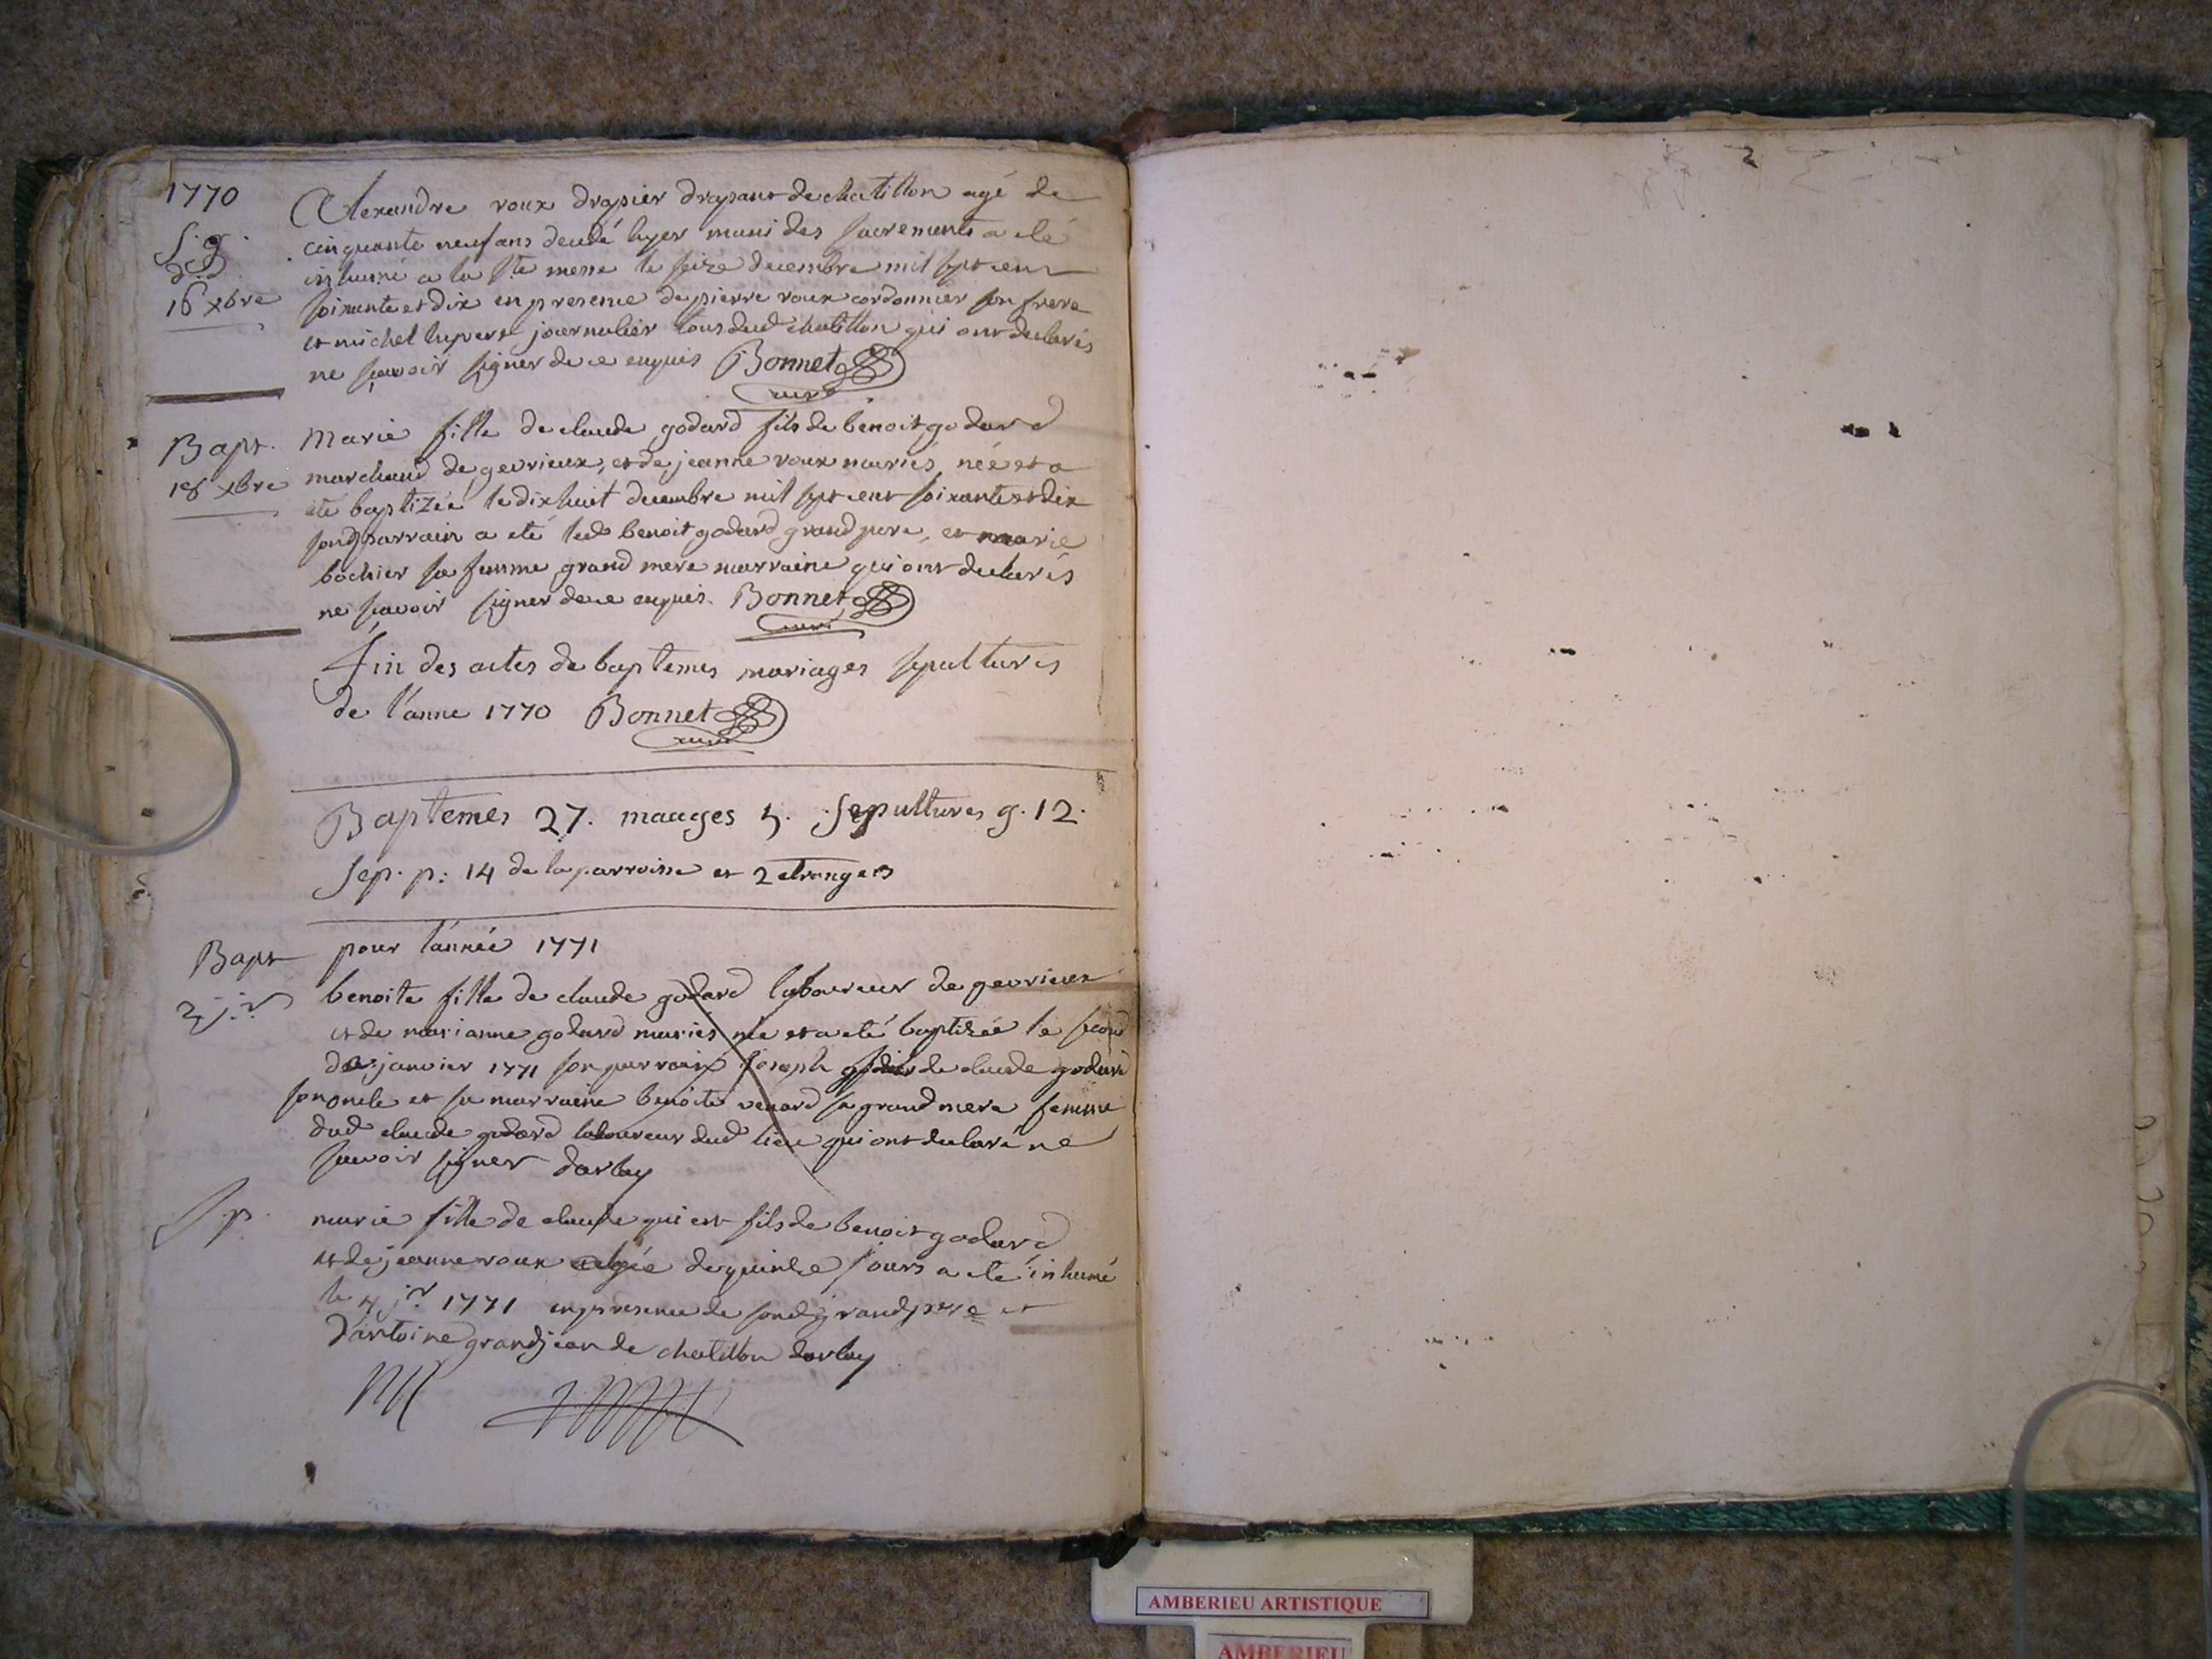 1770
Alexandre roux drapier drapant de chatillon agé de
S. g.
cinquante neuf ans decedé hyer muni des sacrements a eté
d.
inhumé a la ste messe le seize decembre mil sept cent
16 xbre
soixante et dix en presence de pierre roux cordonnier son frere
et michel hyvert journalier tous dud chatillon qui ont declarés
ne sçavoir signer de ce enquis Bonnet
curé
Bapt.
18 xbre
Marie fille de claude godard fils de benoit godard
marchand de gevrieux, et de jeanne roux mariés, née et a
eté baptizée le dix huit decembre mil sept cent soixante et dix
sond parrain a eté led benoit godard grand pere, et marie
bochier sa femme grand mere marraine qui ont declarés
ne sçavoir signer de ce enquis. Bonnet
curé
Fin des actes de baptemes mariages sepultures
de l'anne 1770 Bonnet
curé
Baptemes 27. maages 5. Sepultures g. 12.
Sep. p: 14 de la parroisse et 2 etrangers
Bapt
pour l'année 1771
2 j.r
benoite fille de claude godard laboureur de gevrieux
et de marianne godard mariés née et a eté baptizée le second
de janvier 1771 son parrain joseph de claude godard
son oncle et sa marraine benoite venard sa grand mere femme
dud claude godard laboureur dud lieu qui ont declaré ne
sçavoir signer darlay
S. p.
marie fille de claude qui est fils de benoit godard
et de jeanne roux agée de quinze jours a eté inhumé
le 4 j.r 1771 en presence de sond grand pere et
d'antoine grandjean de chatillon darlay
AMBERIEU ARTISTIQUE
AMBERIEU